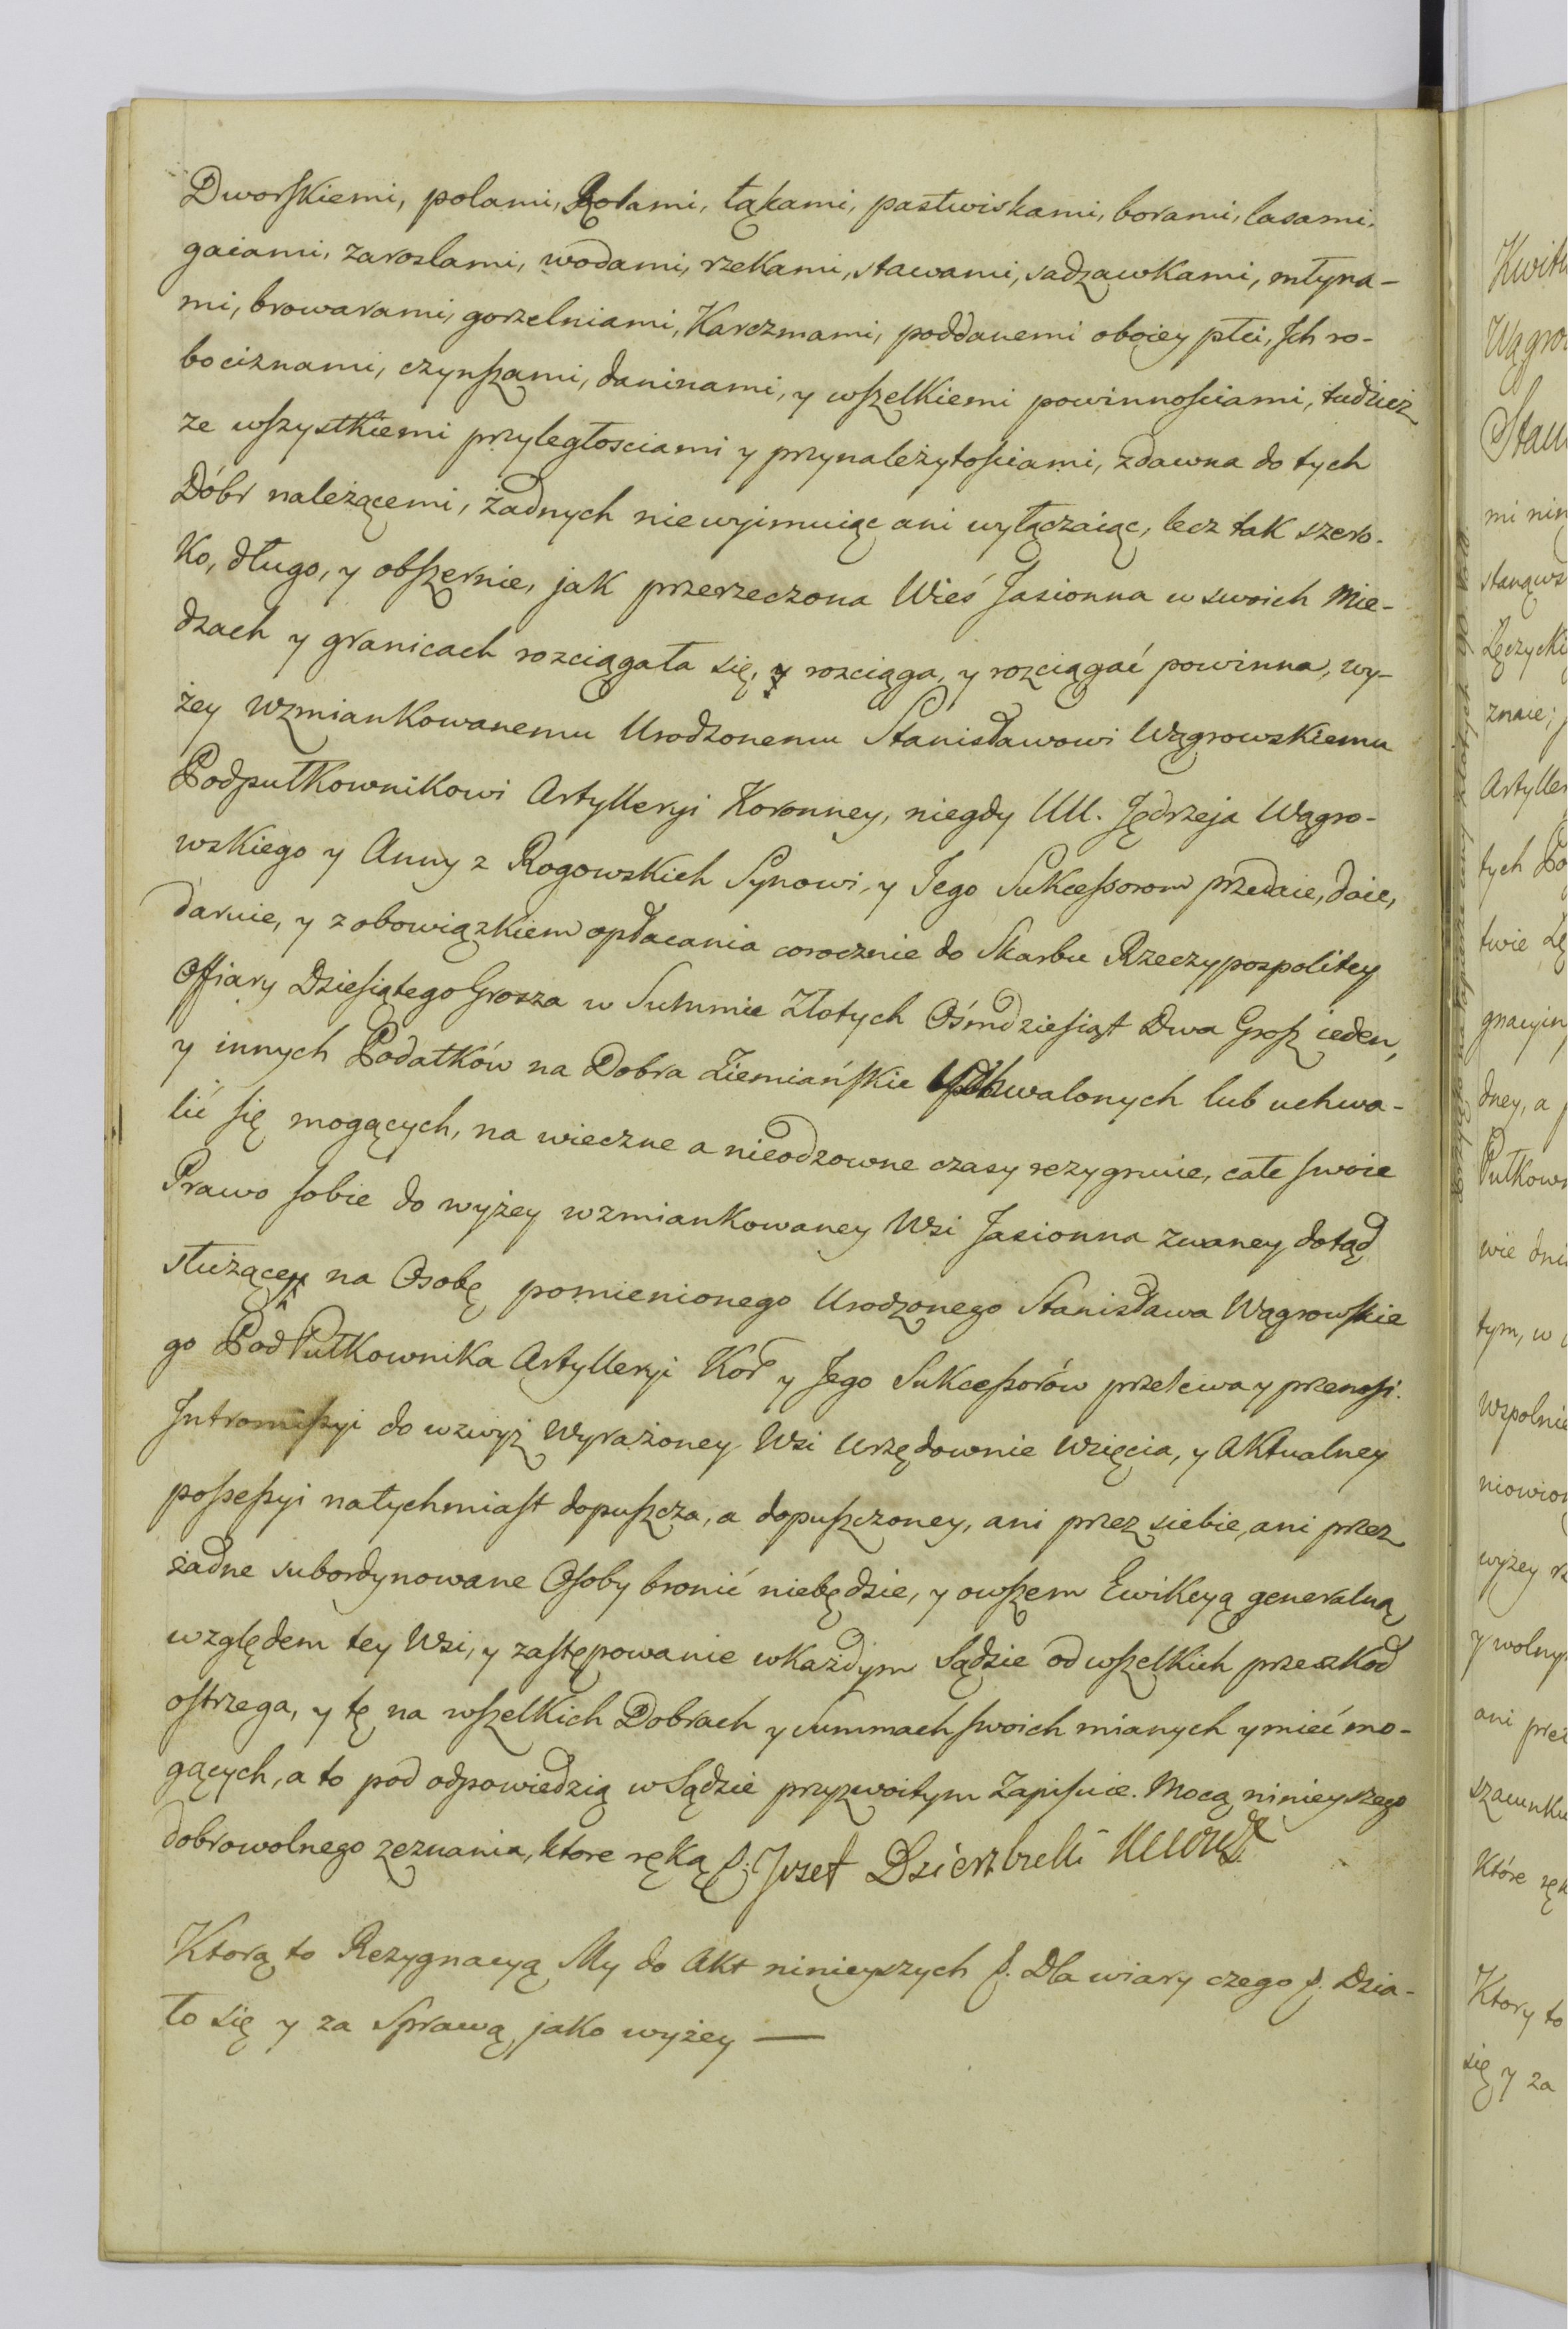 Dworskiemi, polami, Rolami, łąkami, pastwiskami, borami, lasami,
gaiami, zaroslami, wodami, rzekami, stawami, sadzawkami, młyna-
mi, browarami, gorzelniami, Karczmami, poddanemi oboiey płci, Ich ro-
bociznami, czynszami, daninami, y wszelkiemi powinnosciami, tudziez
ze wszystkiemi przyległosciami y przynależytosciami, zdawna do tych
Dóbr należącemi, żadnych niewyimuiąc ani wyłączaiąc, lecz tak szero-
ko, długo, y obszernie, jak przerzeczona Wieś Jasionna w swoich Mie-
dzach y granicach rozciągała się, y rozciąga, y rozciągać powinna, wy-
żey wzmiankowanemu Urodzonemu Stanisławowi Wągrowskiemu
Podpułkownikowi Artylleryi Koronney, niegdy UU. Jędrzeja Wągro-
wskiego y Anny z Rogowskich Synowi, y Jego Sukcessorom przedaie, daie,
daruie, y z obowiązkiem opłacania corocznie do Skarbu Rzeczypospolitey
Offiary Dziesiątego Grosza w Summie Złotych Ośmdziesiąt Dwa Grosz ieden,
y innych Podatków na Dobra Ziemiańskie uchwalonych lub uchwa-
lić się mogących, na wieczne a nieodzowne czasy rezygnuie, całe swoie
Prawo sobie do wyżey wzmiankowaney Wsi Jasionna zwaney dotąd
służące na Osobę pomienionego Urodzonego Stanisława Wągrowskie
go Pod Pułkownika Artylleryi Kor y Jego Sukcessorów przelewa y przenosi.
Intromissyi do wzwyż wyrażoney Wsi Urzędownie wzięcia, y Aktualney
possessyi natychmiast dopuszcza, a dopuszczoney, ani przez siebie, ani przez
żadne subordynowane Osoby bronić niebędzie, y owszem Ewikcyą generalną
względem tey Wsi, y zastępowanie w każdym Sądzie od wszelkich przeszkod
ostrzega, y tę na wszelkich Dobrach y Summach swoich mianych y mieć mo-
gących, a to pod odpowiedzią w Sądzie przyzwoitym Zapisuie. Mocą ninieyszego
dobrowolnego zeznania, ktore ręką p. Jozef Dzierzbicki
Ktorą to Rezygnacyą My do Akt ninieyszych p. Dla wiary czego p. Dzia-
ło się y za Sprawą jako wyżey —